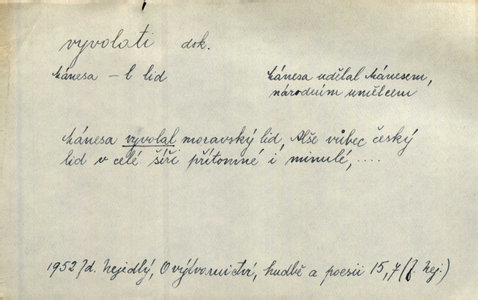 vyvolati dok.
Mánesa – l lid
Mánesa udělal Mánesem,
národním umělcem
Mánesa vyvolal moravský lid, Alše vůbec český
lid v celé šíři přítomné i minulé, ....
1952 Zd. Nejedlý, O výtvarnictví, hudbě a poesii 15,7 (Z. Nej.)